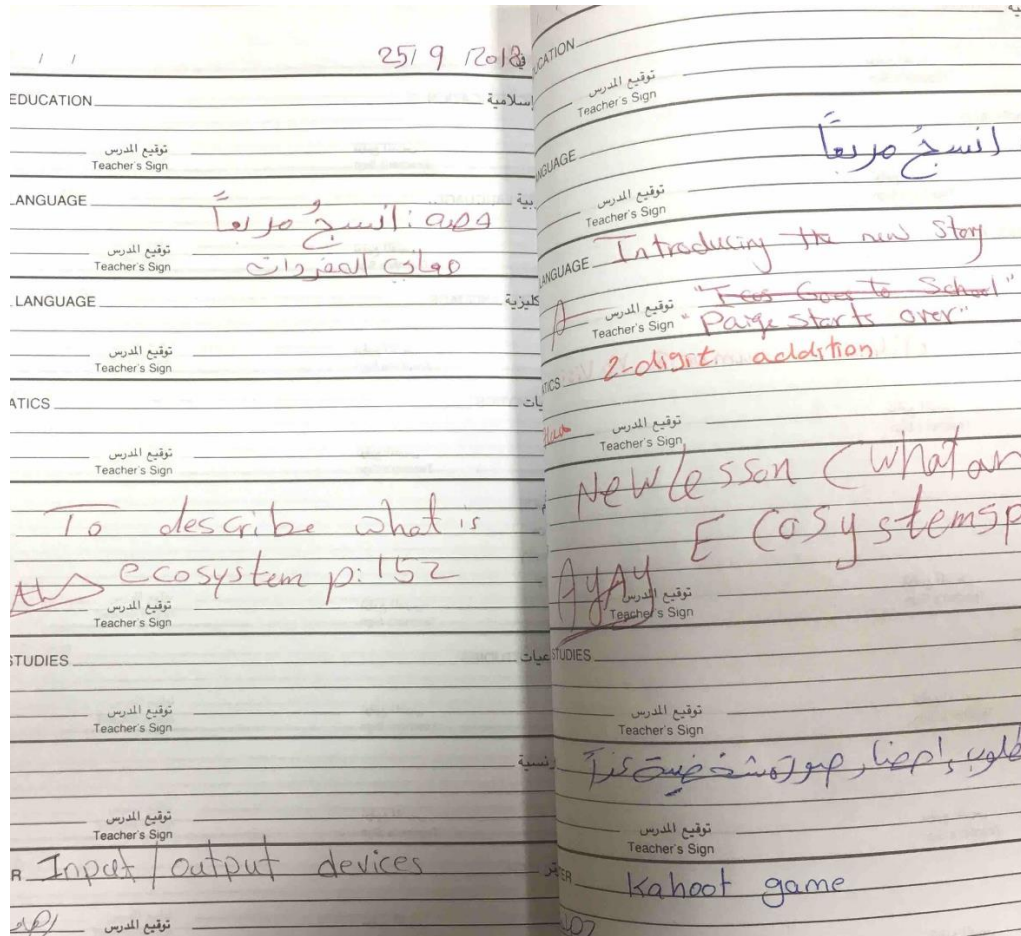 25/9/2018
EDUCATION إسلامية
توقيع المدرس
Teacher's Sign
LANGUAGE بية
حصة : انسجُ مربعاً
توقيع المدرس
Teacher's Sign
معاني المفردات
LANGUAGE كليزية
توقيع المدرس
Teacher's Sign
ATICS يات
توقيع المدرس
Teacher's Sign
To describe what is
ecosystem p: 152
توقيع المدرس
Teacher's Sign
STUDIES عيات
توقيع المدرس
Teacher's Sign
نسية
توقيع المدرس
Teacher's Sign
R Input / output devices تر
توقيع المدرس
UCATION
توقيع المدرس
Teacher's Sign
انسجُ مربعاً
NGUAGE
توقيع المدرس
Teacher's Sign
Introducing the new story
ANGUAGE
Goes to School"
توقيع المدرس
Teacher's Sign
"Paige starts over"
2-digit addition
TICS
توقيع المدرس
Teacher's Sign
New lesson (what an
Ecosystems p
AyAy
توقيع المدرس
Teacher's Sign
STUDIES
توقيع المدرس
Teacher's Sign
طلوب إحضار صورة شخصية غداً
توقيع المدرس
Teacher's Sign
TER Kahoot game